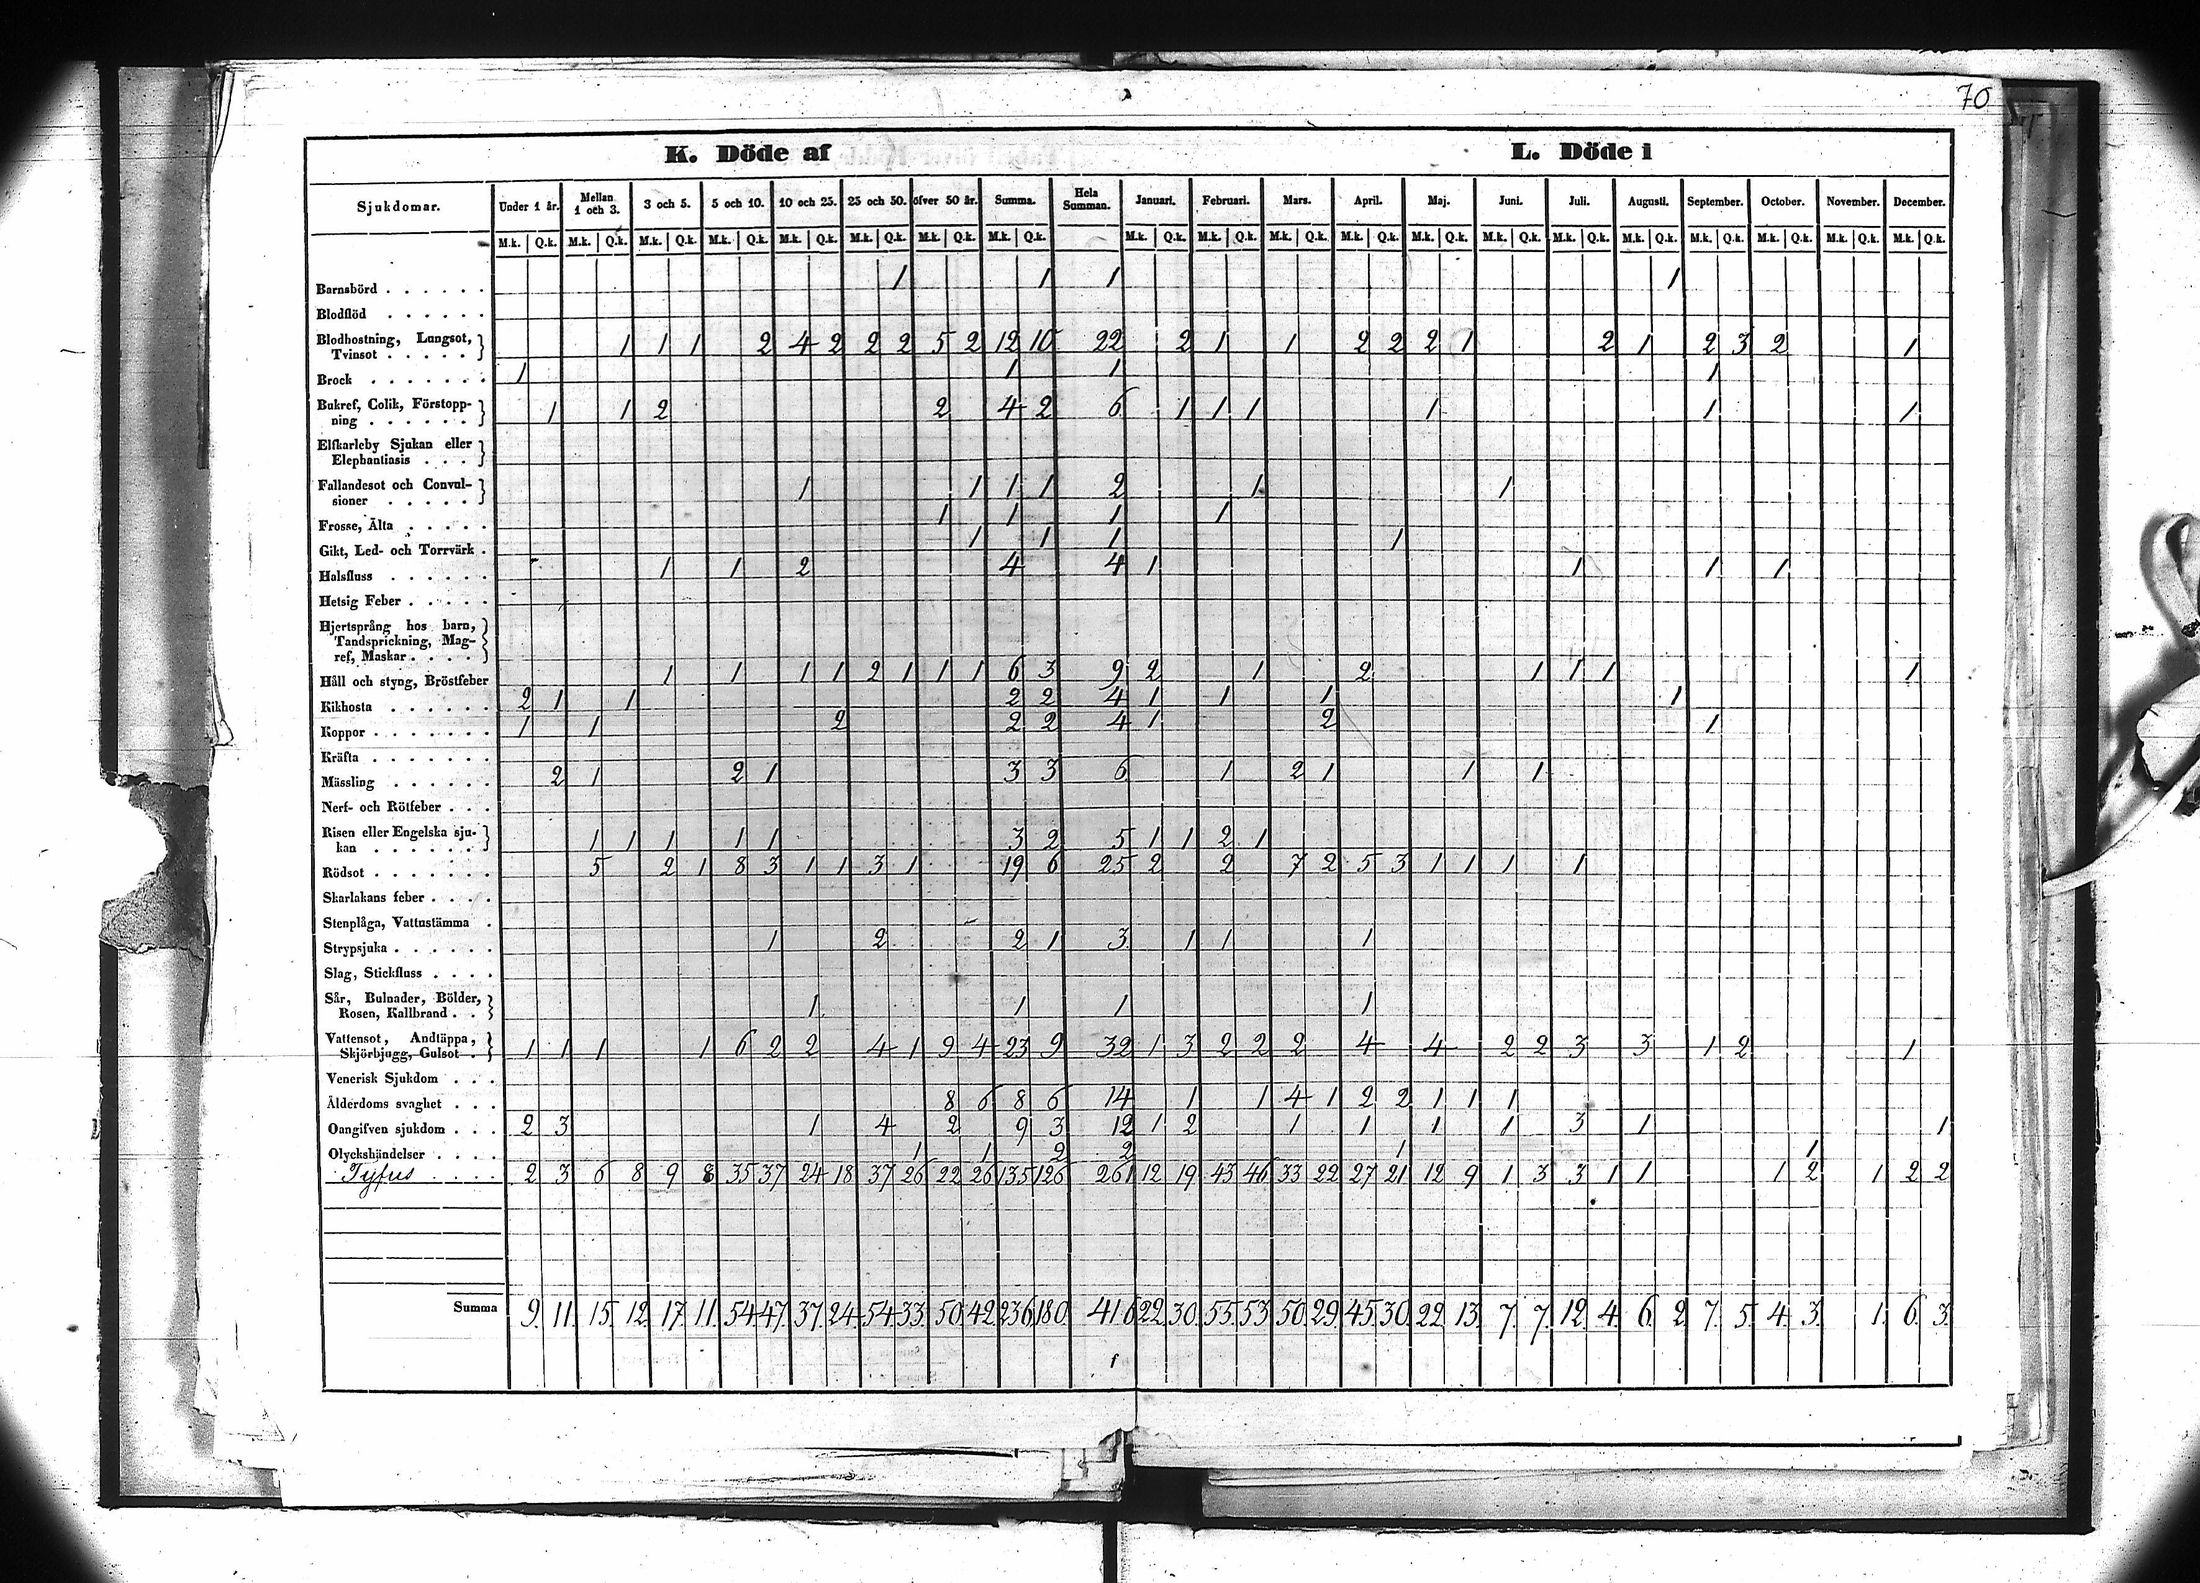 70
K. Döde af L. Döde i
Sjukdomar. Under 1 år. Mellan 1 och 3. 3 och 5. 5 och 10. 10 och 25. 25 och 50. öfver 50 år. Summa. Hela Summan. Januari. Februari. Mars. April. Maj. Juni. Juli. Augusti. September. October. November. December.
M.k. Q.k. M.k. Q.k. M.k. Q.k. M.k. Q.k. M.k. Q.k. M.k. Q.k. M.k. Q.k. M.k. Q.k. M.k. Q.k. M.k. Q.k. M.k. Q.k. M.k. Q.k. M.k. Q.k. M.k. Q.k. M.k. Q.k. M.k. Q.k. M.k. Q.k. M.k. Q.k. M.k. Q.k. M.k. Q.k.
Barnsbörd . . . . . . 1 1 1 1
Blodflöd . . . . . .
Blodhostning, Lungsot,
Tvinsot . . . . . 1 1 1 2 4 2 2 2 5 2 12 10 22 2 1 1 2 2 2 1 2 1 2 3 2 1
Brock . . . . . . . 1 1 1 1
Bukref, Colik, Förstopp-
ning . . . . . . 1 1 2 2 4 2 6 1 1 1 1 1 1
Elfkarleby Sjukan eller
Elephantiasis . . .
Fallandesot och Convul-
sioner . . . . . 1 1 1 1 2 1 1
Frosse, Älta . . . . . 1 1 1 1
Gikt, Led- och Torrvärk . 1 1 1 1
Halsfluss . . . . . . 1 1 2 4 4 1 1 1 1
Hetsig Feber . . . . .
Hjertsprång hos barn,
Tandsprickning, Mag-
ref, Maskar . . . .
Håll och styng, Bröstfeber 1 1 1 1 2 1 1 1 6 3 9 2 1 2 1 1 1 1
Kikhosta . . . . . . 2 1 1 2 2 4 1 1 1 1
Koppor . . . . . . . 1 1 2 2 2 4 1 2 1
Kräfta . . . . . . .
Mässling . . . . . . 2 1 2 1 3 3 6 1 2 1 1 1
Nerf- och Rötfeber . . .
Risen eller Engelska sju-
kan . . . . . . 1 1 1 1 1 3 2 5 1 1 2 1
Rödsot . . . . . . . 5 2 1 8 3 1 1 3 1 19 6 25 2 2 7 2 5 3 1 1 1 1
Skarlakans feber . . . .
Stenplåga, Vattustämma .
Strypsjuka . . . . . . 1 2 2 1 3 1 1 1
Slag, Stickfluss . . . .
Sår, Bulnader, Bölder,
Rosen, Kallbrand . . 1 1 1 1
Vattensot, Andtäppa,
Skjörbjugg, Gulsot . 1 1 1 1 6 2 2 4 1 9 4 23 9 32 1 3 2 2 2 4 4 2 2 3 3 1 2 1
Venerisk Sjukdom . . .
Ålderdoms svaghet . . . 8 6 8 6 14 1 1 4 1 2 2 1 1 1
Oangifven sjukdom . . . 2 3 1 4 2 9 3 12 1 2 1 1 1 1 3 1 1
Olyckshändelser . . . . 1 1 2 2 1 1
Tyfus . . . . 2 3 6 8 9 8 35 37 24 18 37 26 22 26 135 126 261 12 19 43 46 33 22 27 21 12 9 1 3 3 1 1 1 2 1 2 2
Summa 9. 11. 15. 12. 17. 11. 54. 47. 37. 24. 54. 33. 50. 42. 236. 180. 416 22. 30. 55. 53. 50. 29. 45. 30. 22. 13. 7. 7. 12. 4. 6. 2. 7. 5. 4. 3. 1. 6. 3.